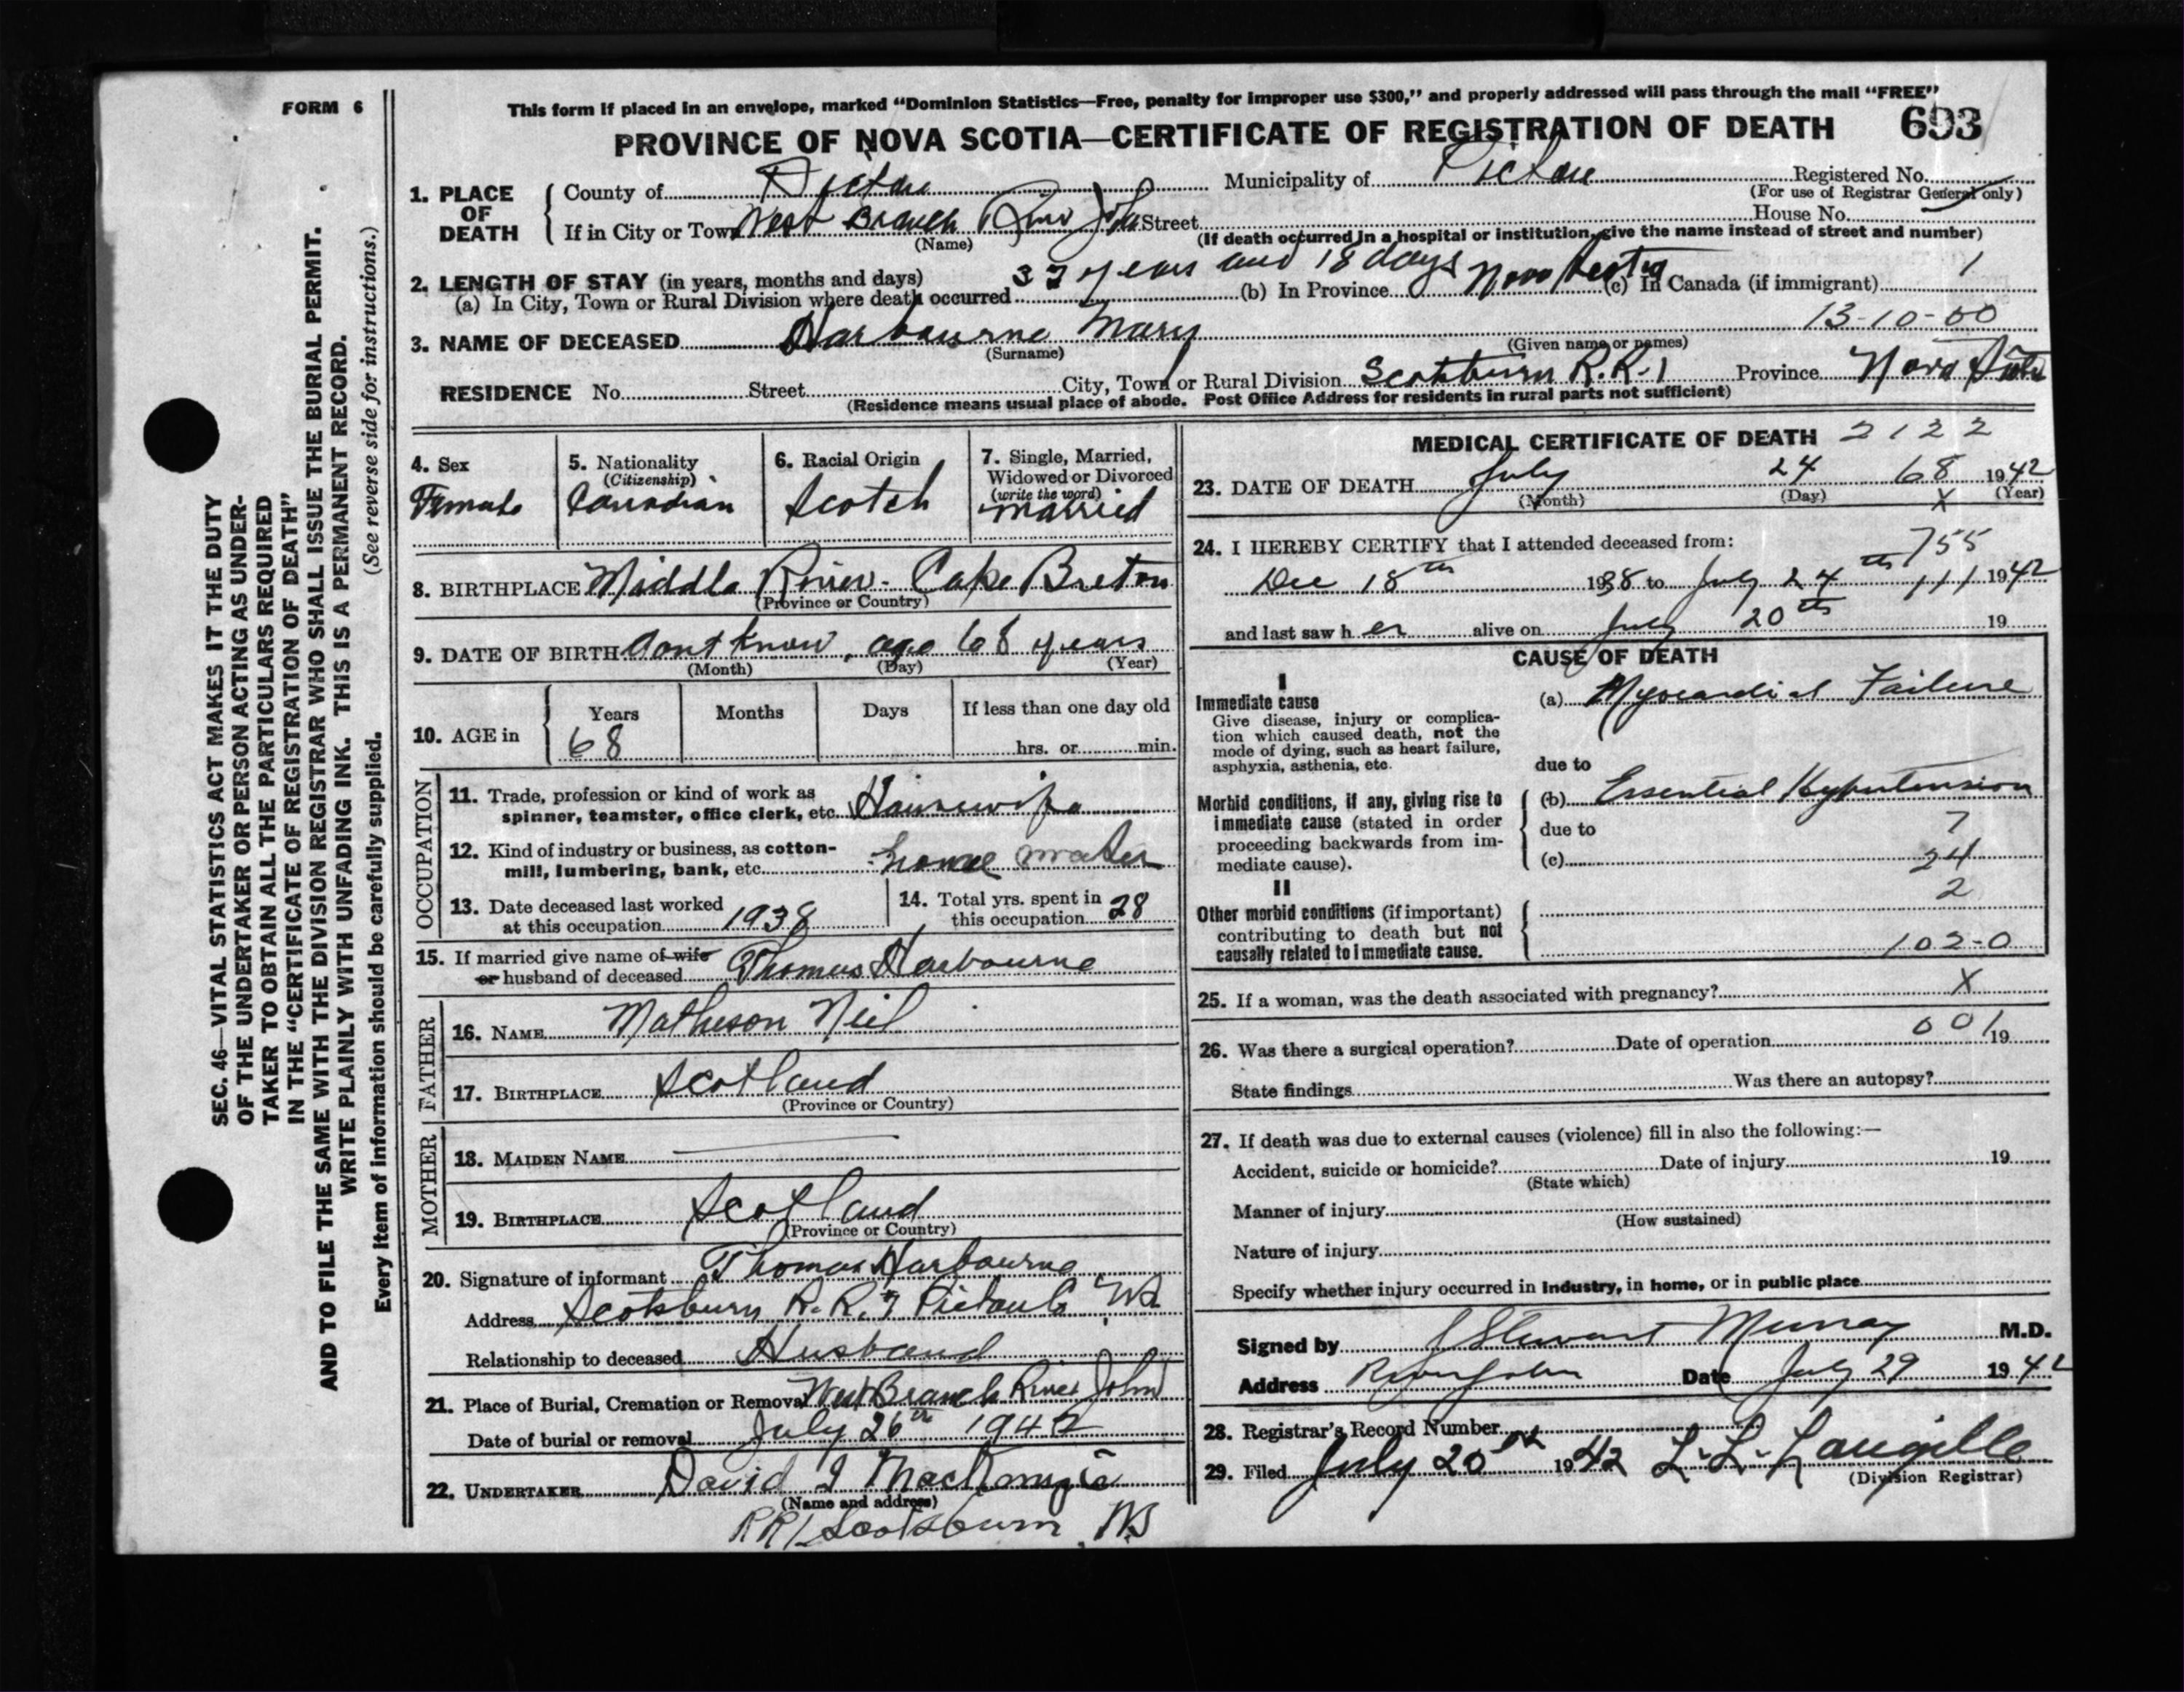 FORM 6
This form if placed in an envelope, marked “Dominion Statistics—Free, penalty for improper use $300,” and properly addressed will pass through the mail “FREE”
PROVINCE OF NOVA SCOTIA—CERTIFICATE OF REGISTRATION OF DEATH 693
SEC. 46—VITAL STATISTICS ACT MAKES IT THE DUTY
OF THE UNDERTAKER OR PERSON ACTING AS UNDER-
TAKER TO OBTAIN ALL THE PARTICULARS REQUIRED
IN THE “CERTIFICATE OF REGISTRATION OF DEATH”
AND TO FILE THE SAME WITH THE DIVISION REGISTRAR WHO SHALL ISSUE THE BURIAL PERMIT.
WRITE PLAINLY WITH UNFADING INK. THIS IS A PERMANENT RECORD.
(See reverse side for instructions.)
Every item of information should be carefully supplied.
1. PLACE OF DEATH
County of Pictou Municipality of Pictou Registered No.
(For use of Registrar General only)
House No.
If in City or Town West Branch River John Street
(Name) (If death occurred in a hospital or institution, give the name instead of street and number)
2. LENGTH OF STAY (in years, months and days)
(a) In City, Town or Rural Division where death occurred 37 years and 18 days (b) In Province Nova Scotia (c) In Canada (if immigrant) 1
13-10-00
3. NAME OF DECEASED Harbourne Mary
(Surname) (Given name or names)
RESIDENCE No. Street City, Town or Rural Division Scotsburn R.R.1 Province Nova Scotia
(Residence means usual place of abode. Post Office Address for residents in rural parts not sufficient)
4. Sex
Female
5. Nationality
(Citizenship)
Canadian
6. Racial Origin
Scotch
7. Single, Married,
Widowed or Divorced
(write the word)
married
8. BIRTHPLACE Middle River - Cape Breton
(Province or Country)
9. DATE OF BIRTH dont know, age 68 years
(Month) (Day) (Year)
10. AGE in Years Months Days If less than one day old
68 hrs. or min.
OCCUPATION
11. Trade, profession or kind of work as
spinner, teamster, office clerk, etc. Housewife
12. Kind of industry or business, as cotton-
mill, lumbering, bank, etc. home
13. Date deceased last worked
at this occupation 1938
14. Total yrs. spent in
this occupation 28
15. If married give name of wife
or husband of deceased Thomas Harbourne
FATHER
16. NAME Matheson Neil
17. BIRTHPLACE Scotland
(Province or Country)
MOTHER
18. MAIDEN NAME
19. BIRTHPLACE Scotland
(Province or Country)
20. Signature of informant Thomas Harbourne
Address Scotsburn R.R.1 Pictou Co NS
Relationship to deceased Husband
21. Place of Burial, Cremation or Removal West Branch River John
Date of burial or removal July 26th 1942
22. UNDERTAKER David I MacKenzie
(Name and address)
RR1 Scotsburn, NS
MEDICAL CERTIFICATE OF DEATH 2122
23. DATE OF DEATH July 24 68 1942
(Month) (Day) X (Year)
24. I HEREBY CERTIFY that I attended deceased from:
755
Dec 18th 1938 to July 24th 111 1942
and last saw her alive on July 20th 19
CAUSE OF DEATH
I
Immediate cause
Give disease, injury or complica-
tion which caused death, not the
mode of dying, such as heart failure,
asphyxia, asthenia, etc.
(a) Myocardial Failure
due to
Morbid conditions, if any, giving rise to
immediate cause (stated in order
proceeding backwards from im-
mediate cause).
(b) Essential Hypertension
due to 7
(c) 24
2
II
Other morbid conditions (if important)
contributing to death but not
causally related to immediate cause.
102-0
25. If a woman, was the death associated with pregnancy? X
26. Was there a surgical operation? Date of operation 001 19
State findings Was there an autopsy?
27. If death was due to external causes (violence) fill in also the following:—
Accident, suicide or homicide? Date of injury 19
(State which)
Manner of injury
(How sustained)
Nature of injury
Specify whether injury occurred in industry, in home, or in public place
Signed by J Stewart Murray M.D.
Address River John Date July 29 1942
28. Registrar's Record Number
29. Filed July 20th 1942 L. L. Langille
(Division Registrar)